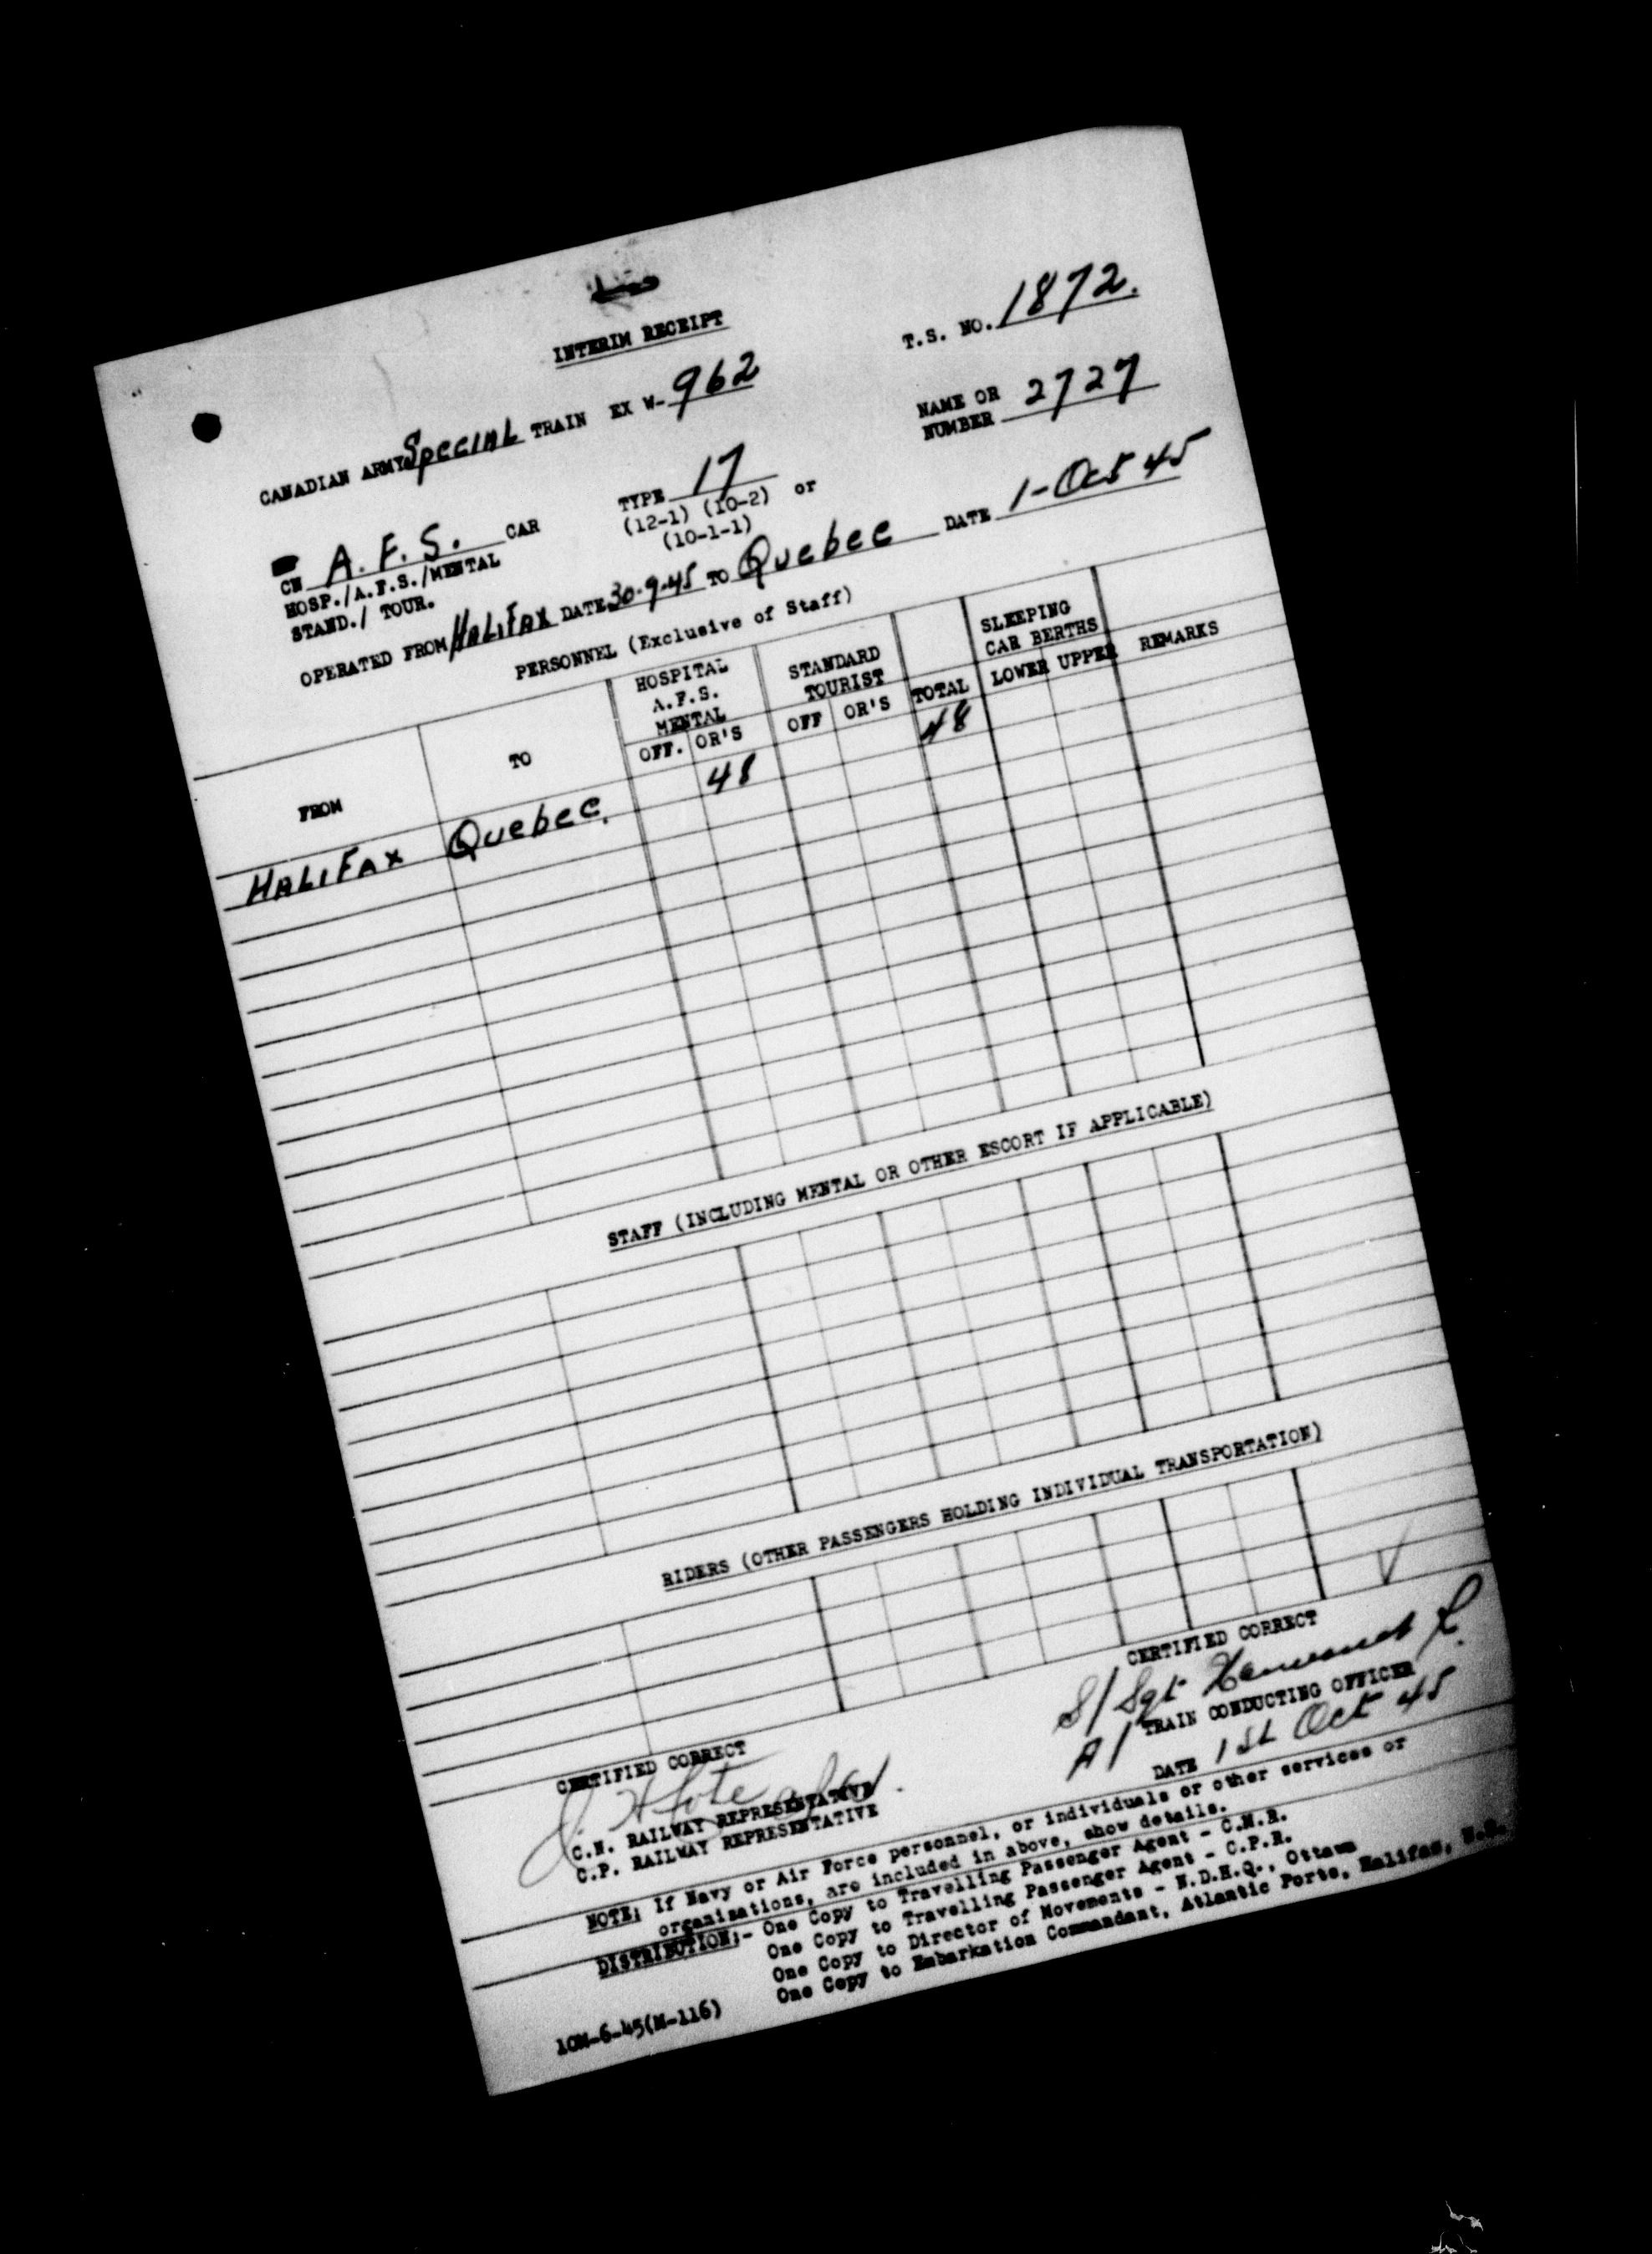 INTERIM RECEIPT
T.S. NO. 1872.
CANADIAN ARMY Special TRAIN EX W- 962
NAME OR NUMBER 2727
CN A.F.S. CAR
HOSP./A.F.S./MENTAL
STAND./ TOUR.
TYPE 17
(12-1) (10-2) or
(10-1-1)
OPERATED FROM HALIFAX DATE 30-9-45 TO Quebec DATE 1-Oct 45
PERSONNEL (Exclusive of Staff)
FROM TO HOSPITAL A.F.S. MENTAL STANDARD TOURIST TOTAL SLEEPING CAR BERTHS REMARKS
OFF. OR'S OFF OR'S LOWER UPPER
HALIFAX Quebec. 48 48
STAFF (INCLUDING MENTAL OR OTHER ESCORT IF APPLICABLE)
RIDERS (OTHER PASSENGERS HOLDING INDIVIDUAL TRANSPORTATION)
CERTIFIED CORRECT
S/Sgt
A/ TRAIN CONDUCTING OFFICER
DATE 1st Oct 45
CERTIFIED CORRECT
C.N. RAILWAY REPRESENTATIVE
C.P. RAILWAY REPRESENTATIVE
NOTE: If Navy or Air Force personnel, or individuals or other services or
organizations, are included in above, show details.
DISTRIBUTION:- One Copy to Travelling Passenger Agent - C.N.R.
One Copy to Travelling Passenger Agent - C.P.R.
One Copy to Director of Movements - N.D.H.Q., Ottawa
One Copy to Embarkation Commandant, Atlantic Ports, Halifax, N.S.
10M-6-45(M-116)